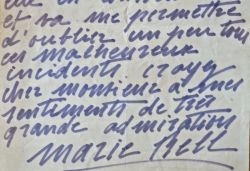 et va me permettre
d'oublier un peu tous
ces malheureux
incidents croyez
cher monsieur à mes
sentiments de très
grande admiration
Marie Bell